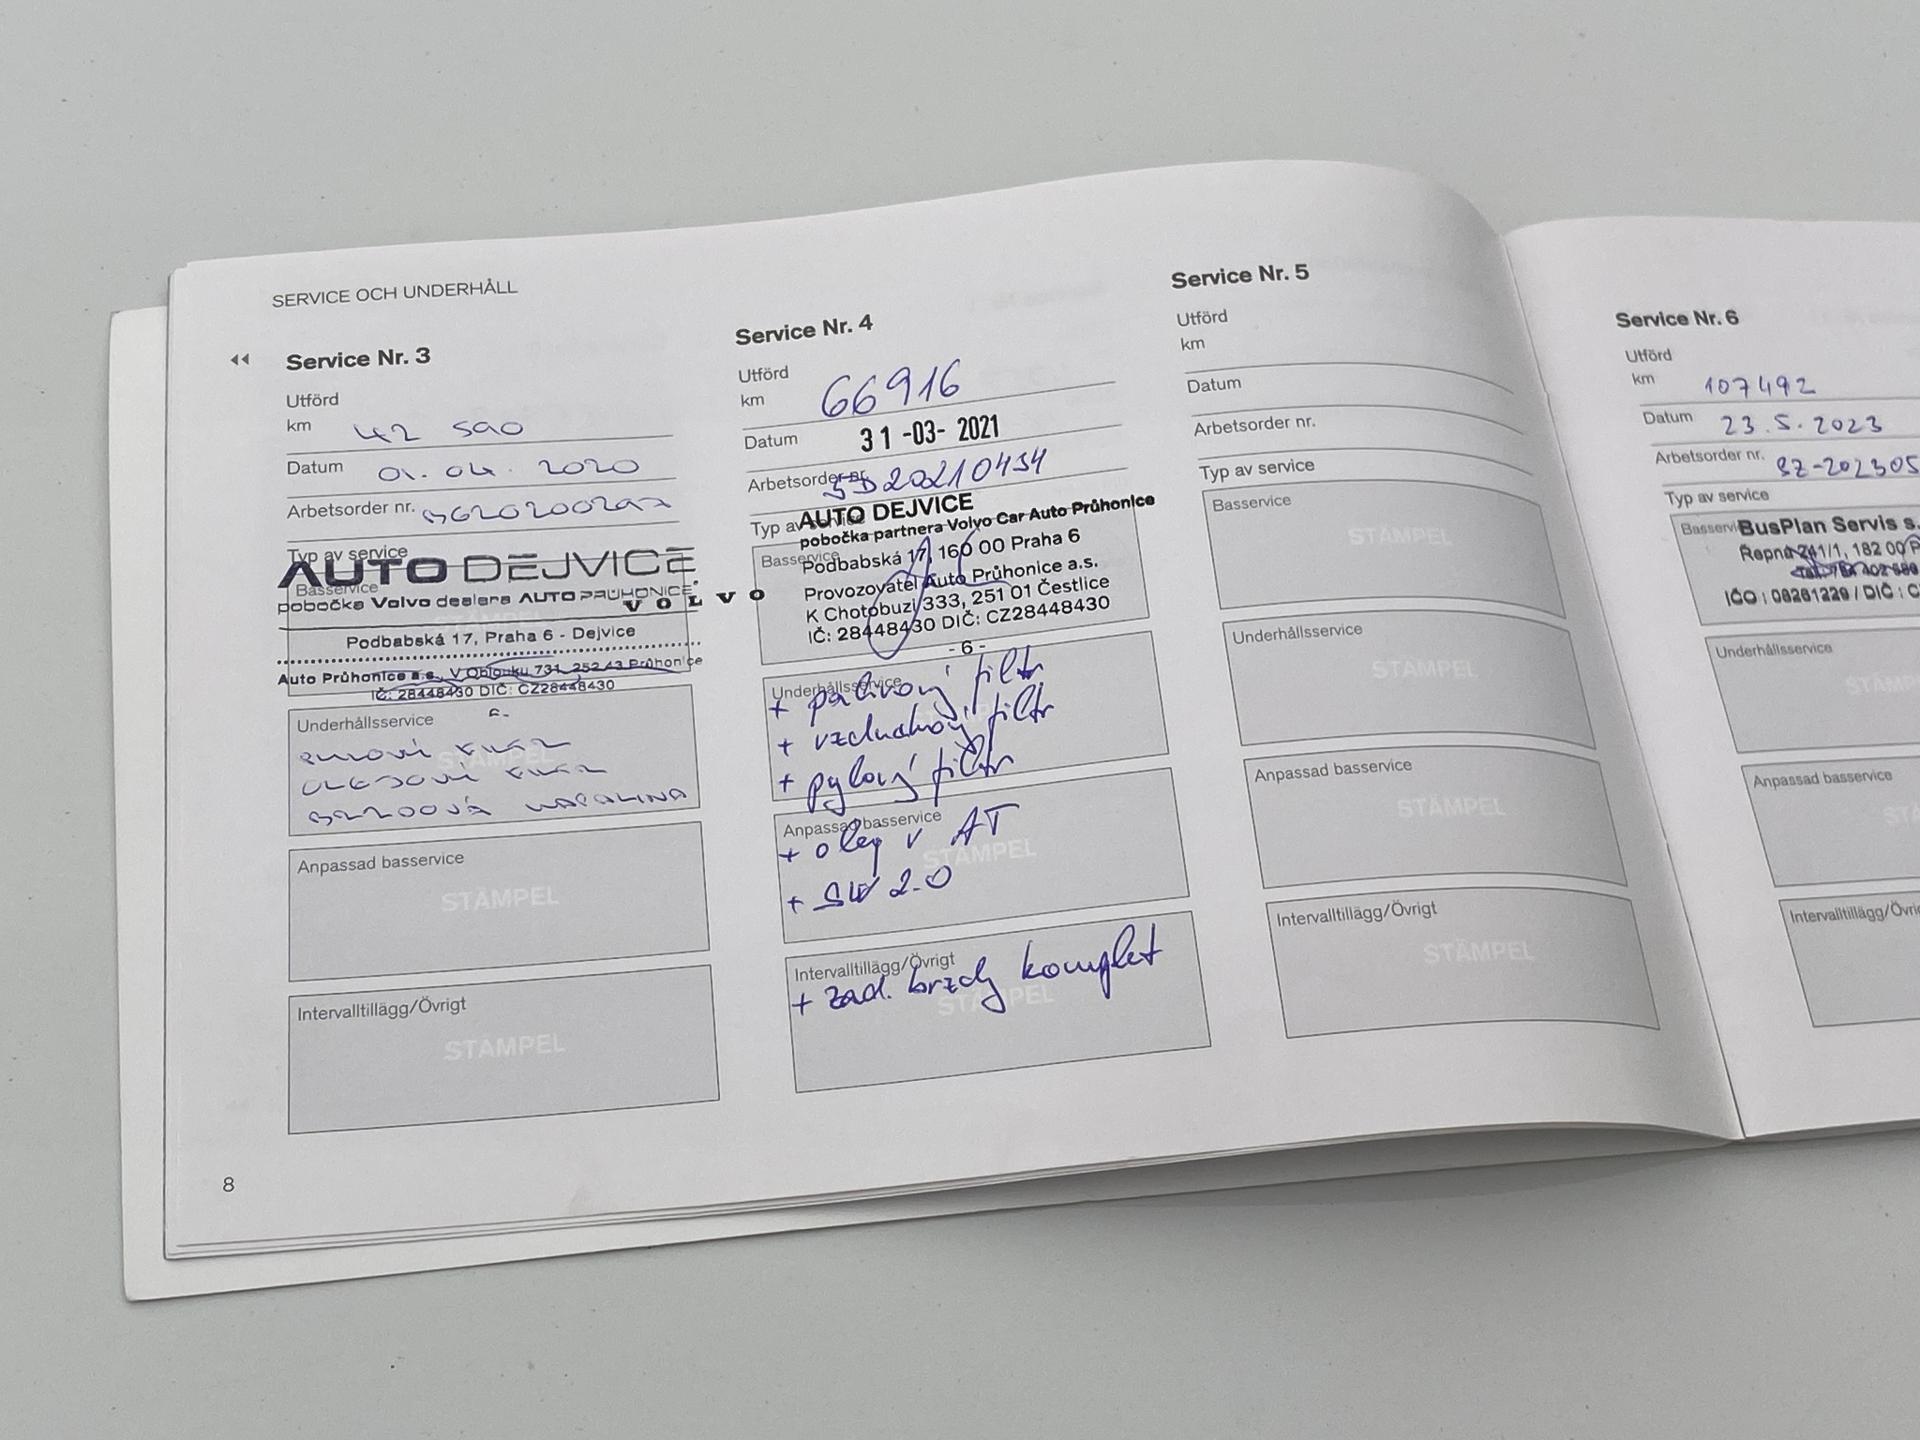 SERVICE OCH UNDERHÅLL
Service Nr. 3
Utförd
km 42 590
Datum 01. 04. 2020
Arbetsorder nr.
Typ av service
AUTO DEJVICE
Basservice
pobočka Volvo dealera AUTO PRŮHONICE
VOLVO
Podbabská 17, Praha 6 - Dejvice
Auto Průhonice a.s., V Oblouku 731, 252 43 Průhonice
IČ: 28448430 DIČ: CZ28448430
Underhållsservice
STÄMPEL
PYLOVÝ FILTR
OLEJOVÝ FILTR
BRZDOVÁ KAPALINA
Anpassad basservice
STÄMPEL
Intervalltillägg/Övrigt
STÄMPEL
8
Service Nr. 4
Utförd
km 66916
Datum 31 -03- 2021
Arbetsorder nr. SD20210454
Typ av service
AUTO DEJVICE
pobočka partnera Volvo Car Auto Průhonice
Basservice
Podbabská 17, 160 00 Praha 6
Provozovatel Auto Průhonice a.s.
K Chotobuzi 333, 251 01 Čestlice
IČ: 28448430 DIČ: CZ28448430
- 6 -
Underhållsservice
+ palivový filtr
+ vzduchový filtr
+ pylový filtr
Anpassad basservice
STÄMPEL
+ olej v AT
+ SW 2.0
Intervalltillägg/Övrigt
STÄMPEL
+ zad. brzdy komplet
Service Nr. 5
Utförd
km
Datum
Arbetsorder nr.
Typ av service
Basservice
STÄMPEL
Underhållsservice
STÄMPEL
Anpassad basservice
STÄMPEL
Intervalltillägg/Övrigt
STÄMPEL
Service Nr. 6
Utförd
km 107492
Datum 23.5.2023
Arbetsorder nr. SZ-202305
Typ av service
Basservi BusPlan Servis s.
Řepná 241/1, 182 00 P
IČO : 08261229 / DIČ : C
Underhållsservice
STÄMP
Anpassad basservice
STÄ
Intervalltillägg/Övri